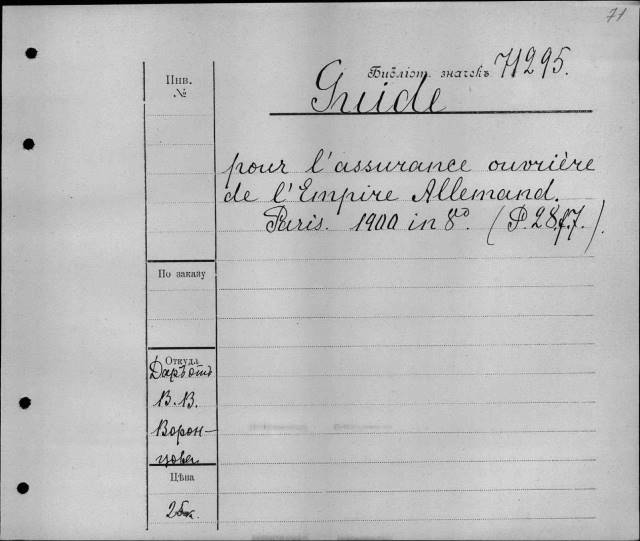 71
Библіот. значекъ 71295.
Guide
pour l'assurance ouvrière
de l'Empire Allemand.
Paris. 1900 in 8º. (P. 28.f.7.).
Инв.
№
По заказу
Откуда
Даръ отъ
В. В.
Ворон-
цова
Цѣна